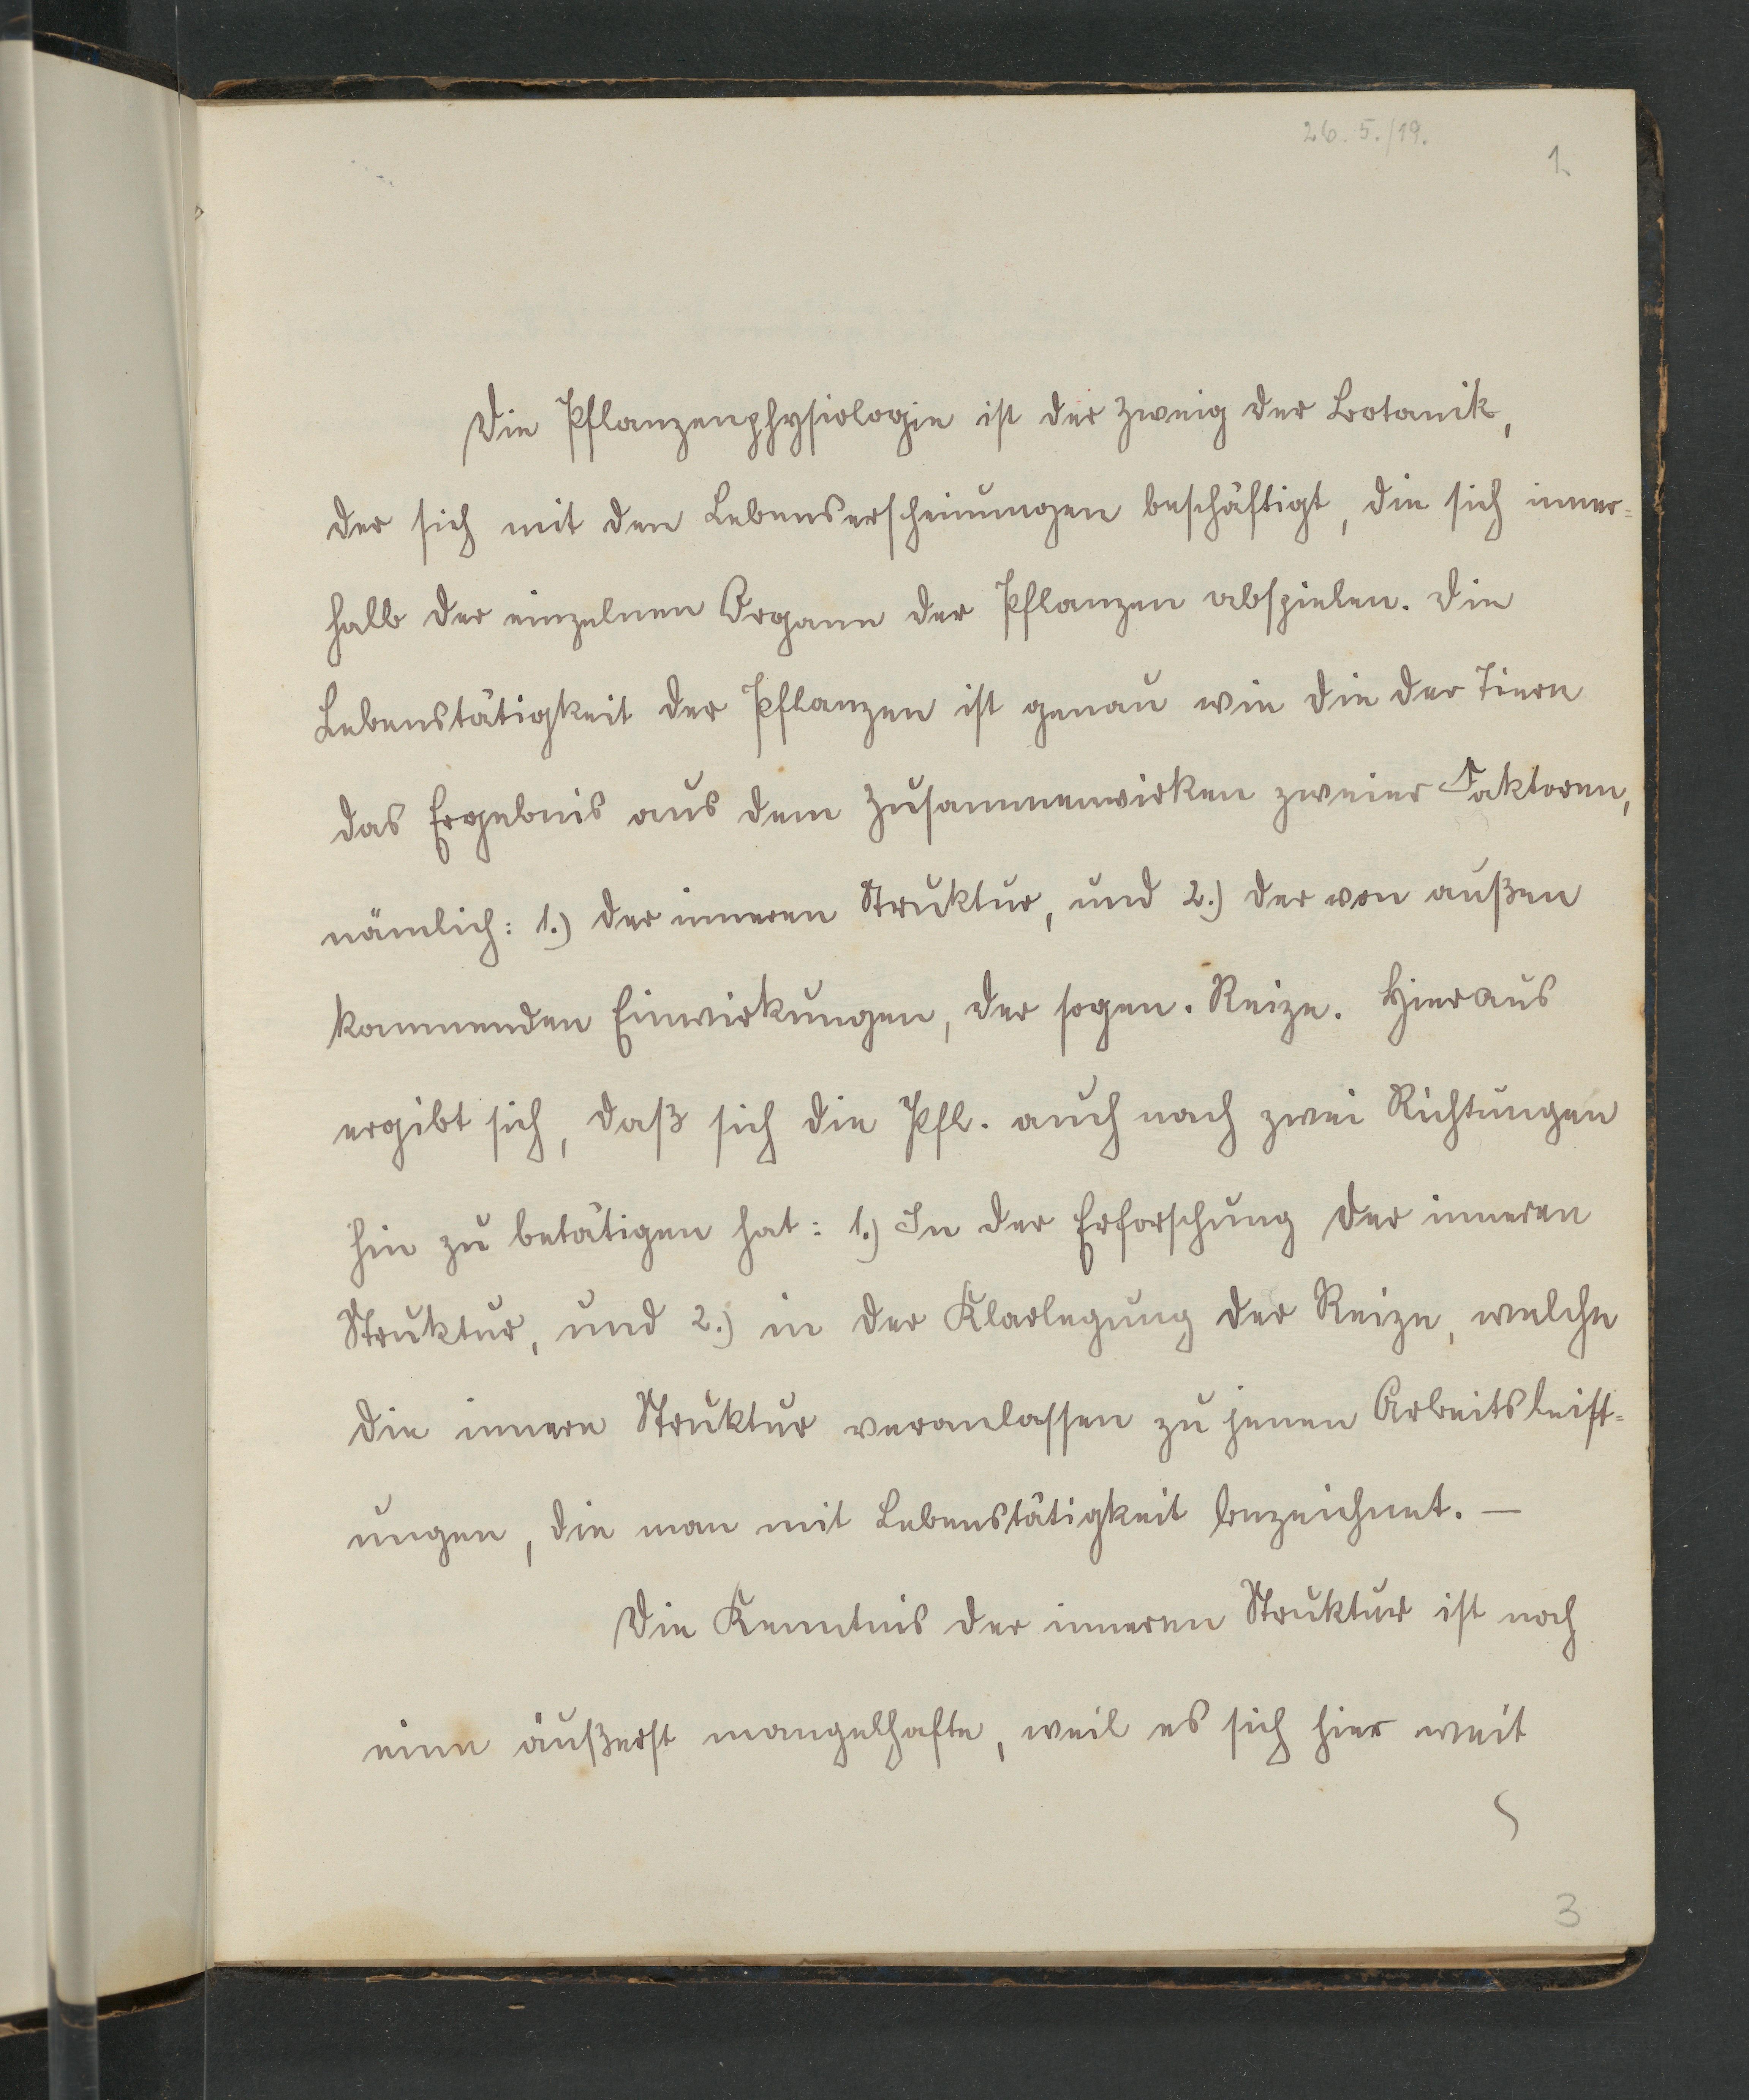 26. 5./19.
1.
Die Pflanzenphysiologie ist der Zweig der Botanik,
der sich mit den Lebenserscheinungen beschäftigt, die sich inner=
halb der einzelnen Organe der Pflanzen abspielen. Die
Lebenstätigkeit der Pflanzen ist genau wie die der Tiere
das Ergebnis aus dem Zusammenwirken zweier Faktoren,
nämlich: 1.) der inneren Struktur, und 2.) der von außen
kommenden Einwirkungen, der sogen. Reize. Hieraus
ergibt sich, daß sich die Pfl. auch nach zwei Richtungen
hin zu betätigen hat: 1.) In der Erforschung der inneren
Struktur, und 2.) in der Klarlegung der Reize, welche
die innere Struktur veranlassen zu jenen Arbeitsleist=
ungen, die man mit Lebenstätigkeit bezeichnet. —
Die Kenntnis der inneren Struktur ist noch
eine äußerst mangelhafte, weil es sich hier weit
3